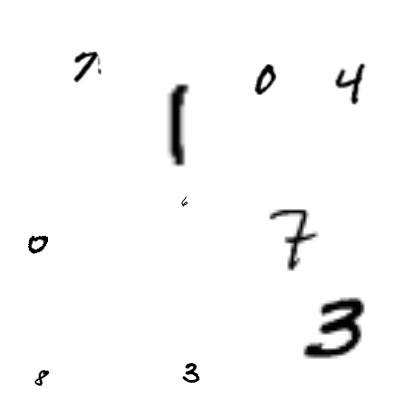 7 1 0 4
0 6 7
3
8 3